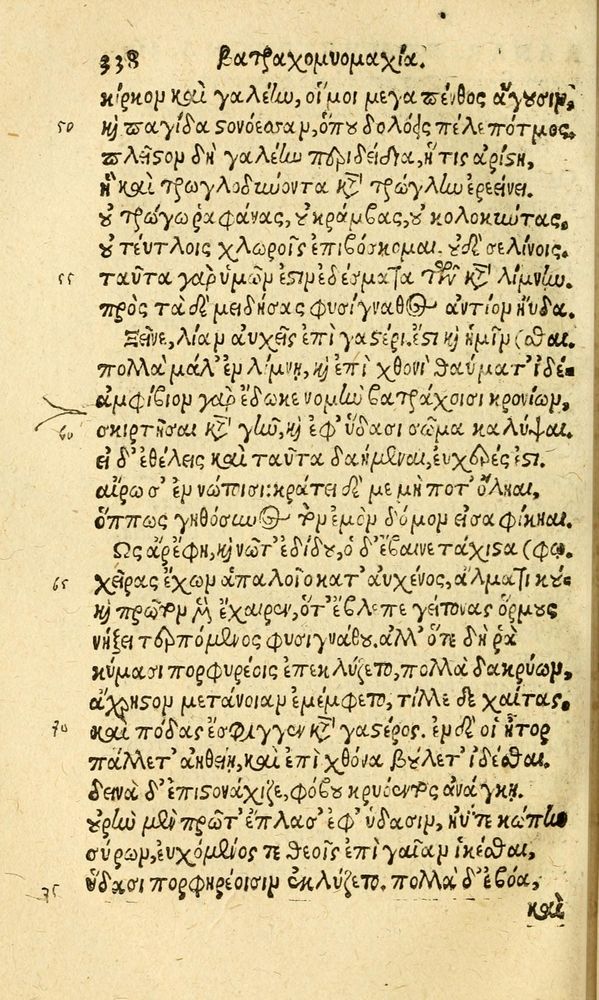 338 βατραχομυομαχία.
κίρκον καὶ γαλέην, οἵ μοι μέγα πένθος ἄγουσιν,
50 καὶ παγίδα στονόεσσαν, ὅπου δολόεις πέλε πότμος.
πλεῖστον δὴ γαλέην περιδείδια, ἥ τις ἀρίστη,
ἣ καὶ τρωγλοδύνοντα κατὰ τρώγλην ἐρεείνει.
οὐ τρώγω ῥαφάνας, οὐ κράμβας, οὐ κολοκύντας.
οὐ τεύτλοις χλωροῖς ἐπιβόσκομαι. οὐδὲ σελίνοις.
55 ταῦτα γὰρ ὑμῶν ἐστιν ἐδέσματα τῶν κατὰ λίμνην.
πρὸς τάδε μειδήσας φυσίγναθος ἀντίον ηὔδα.
Ξεῖνε, λίαν αὐχεῖς ἐπὶ γαστέρι. ἔστι καὶ ἡμῖν (σθαι.
πολλὰ μάλ' ἐν λίμνῃ, καὶ ἐπὶ χθονὶ θαύματ' ἰδέ-
ἀμφίβιον γὰρ ἔδωκε νομὴν βατράχοισι κρονίων,
60 σκιρτῆσαι κατὰ γῆν, καὶ ἐφ' ὕδασι σῶμα καλύψαι.
εἰ δ' ἐθέλεις καὶ ταῦτα δαήμεναι, εὐχερές ἐστι.
αἴρω σ' ἐν νώτοισι: κράτει δέ με μή ποτ' ὄληαι,
ὅππως γηθόσυνος τὸν ἐμὸν δόμον εἰσαφίκηαι.
Ὣς ἄρ' ἔφη, καὶ νῶτ' ἐδίδου, ὁ δ' ἔβαινε τάχιστα (φω.
65 χεῖρας ἔχων ἁπαλοῖο κατ' αὐχένος, ἅλματι κού-
καὶ πρῶτον μὲν ἔχαιρεν, ὅτ' ἔβλεπε γείτονας ὅρμους
νήξει τερπόμενος φυσιγνάθου. ἀλλ' ὅτε δή ῥα
κύμασι πορφυρέοις ἐπεκλύζετο, πολλὰ δακρύων,
ἄχρηστον μετάνοιαν ἐμέμφετο, τίλλε δὲ χαίτας.
70 καὶ πόδας ἔσφιγγεν κατὰ γαστέρος. ἐν δέ οἱ ἦτορ
πάλλετ' ἀηθείῃ, καὶ ἐπὶ χθόνα βούλετ' ἰδέσθαι.
δεινὰ δ' ἐπιστονάχιζε, φόβου κρυόεντος ἀνάγκῃ.
οὐρὴν μὲν πρῶτ' ἔπλασ' ἐφ' ὕδασιν, ἠΰτε κώπην
σύρων, εὐχόμενός τε θεοῖς ἐπὶ γαῖαν ἱκέσθαι,
75 ὕδασι πορφηρέοισιν ἐκλύζετο. πολλὰ δ' ἐβόα,
καὶ